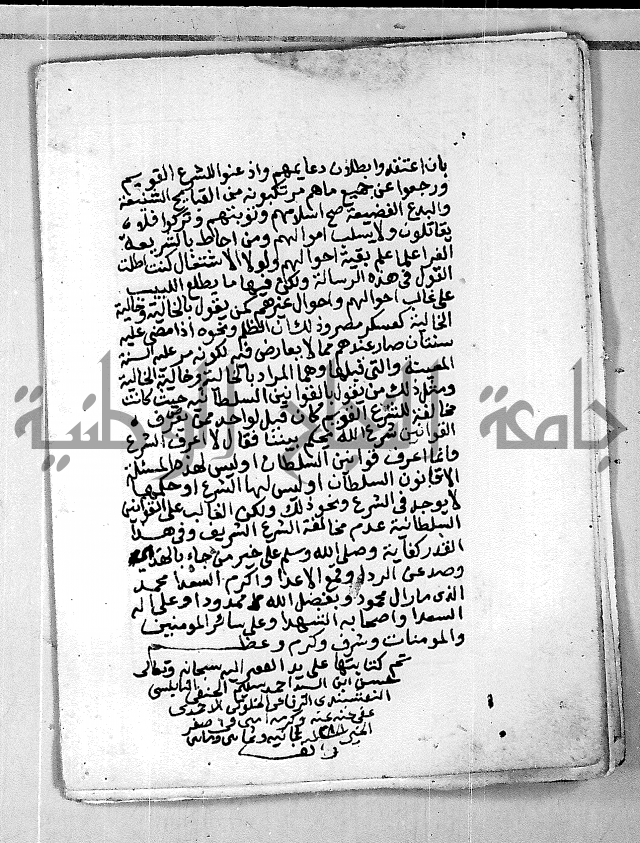 بان اعتقدوا بطلان دعايهم واذعنوا للشرع القويم
ورجعوا عن جميع ما هم مرتكبونه من القبايح الشنيعة
والبدع الفضيعة صح اسلامهم وتوبتهم وتركوا فلا
يقاتلون ولا يسلب اموالهم ومن احاط بالشريعة
الغرا علما علم بقية احوالهم ولولا الاشتغال كنت اطلت
القول في هذه الرسالة ولكن فيها ما يطلع اللبيب
على غالب احوالهم واحوال غيرهم كمن يقول بالخالية وخالية
الخالية كعسكر مصر وذلك ان الظلم ونحوه اذا مضى عليه
سنتان صار عندهم مما لا يعارض فيه لكونه مر عليه السنة
والتي قبلها وهما المراد بالخالية وخالية الخالية
ومثل ذلك من يقول بالقوانين السلطانية حيث كانت
مخالفة للشرع القويم كان قيل لواحد ممن يعرف
القوانين شرع الله محكم بيننا فقال لا اعرف الشرع
وانما اعرف قوانين السلطان او ليس لهذه المسئلة
الا قانون السلطان او ليس لها الشرع او حكمها
لا يوجد في الشرع ونحو ذلك ولكن الغالب على القوانين
السلطانية عدم مخالفة الشرع الشريف وفي هذا
القدر كفاية وصلى الله وسلم على خير من جاء بالهدى
وصد عن الردا وقمع الاعدا واكرم السعدا محمد
الذي ما زال محمود وبفضل الله ممدودا وعلى اله
السعدا واصحابه الشهدا وعلى سائر المومنين
والمومنات وشرف وكرم وعظم
تم كتابتها على يد الفقير اليه سبحانه وتعالى
حسن ابن السيد احمد سليم الحنفي النابلسي
النقشبندي الرفاعي الخلوتي الاحمدي
عفي عنه بمنه وكرمه امين في صفر
الخير
والف
جامعة النجاح الوطنية